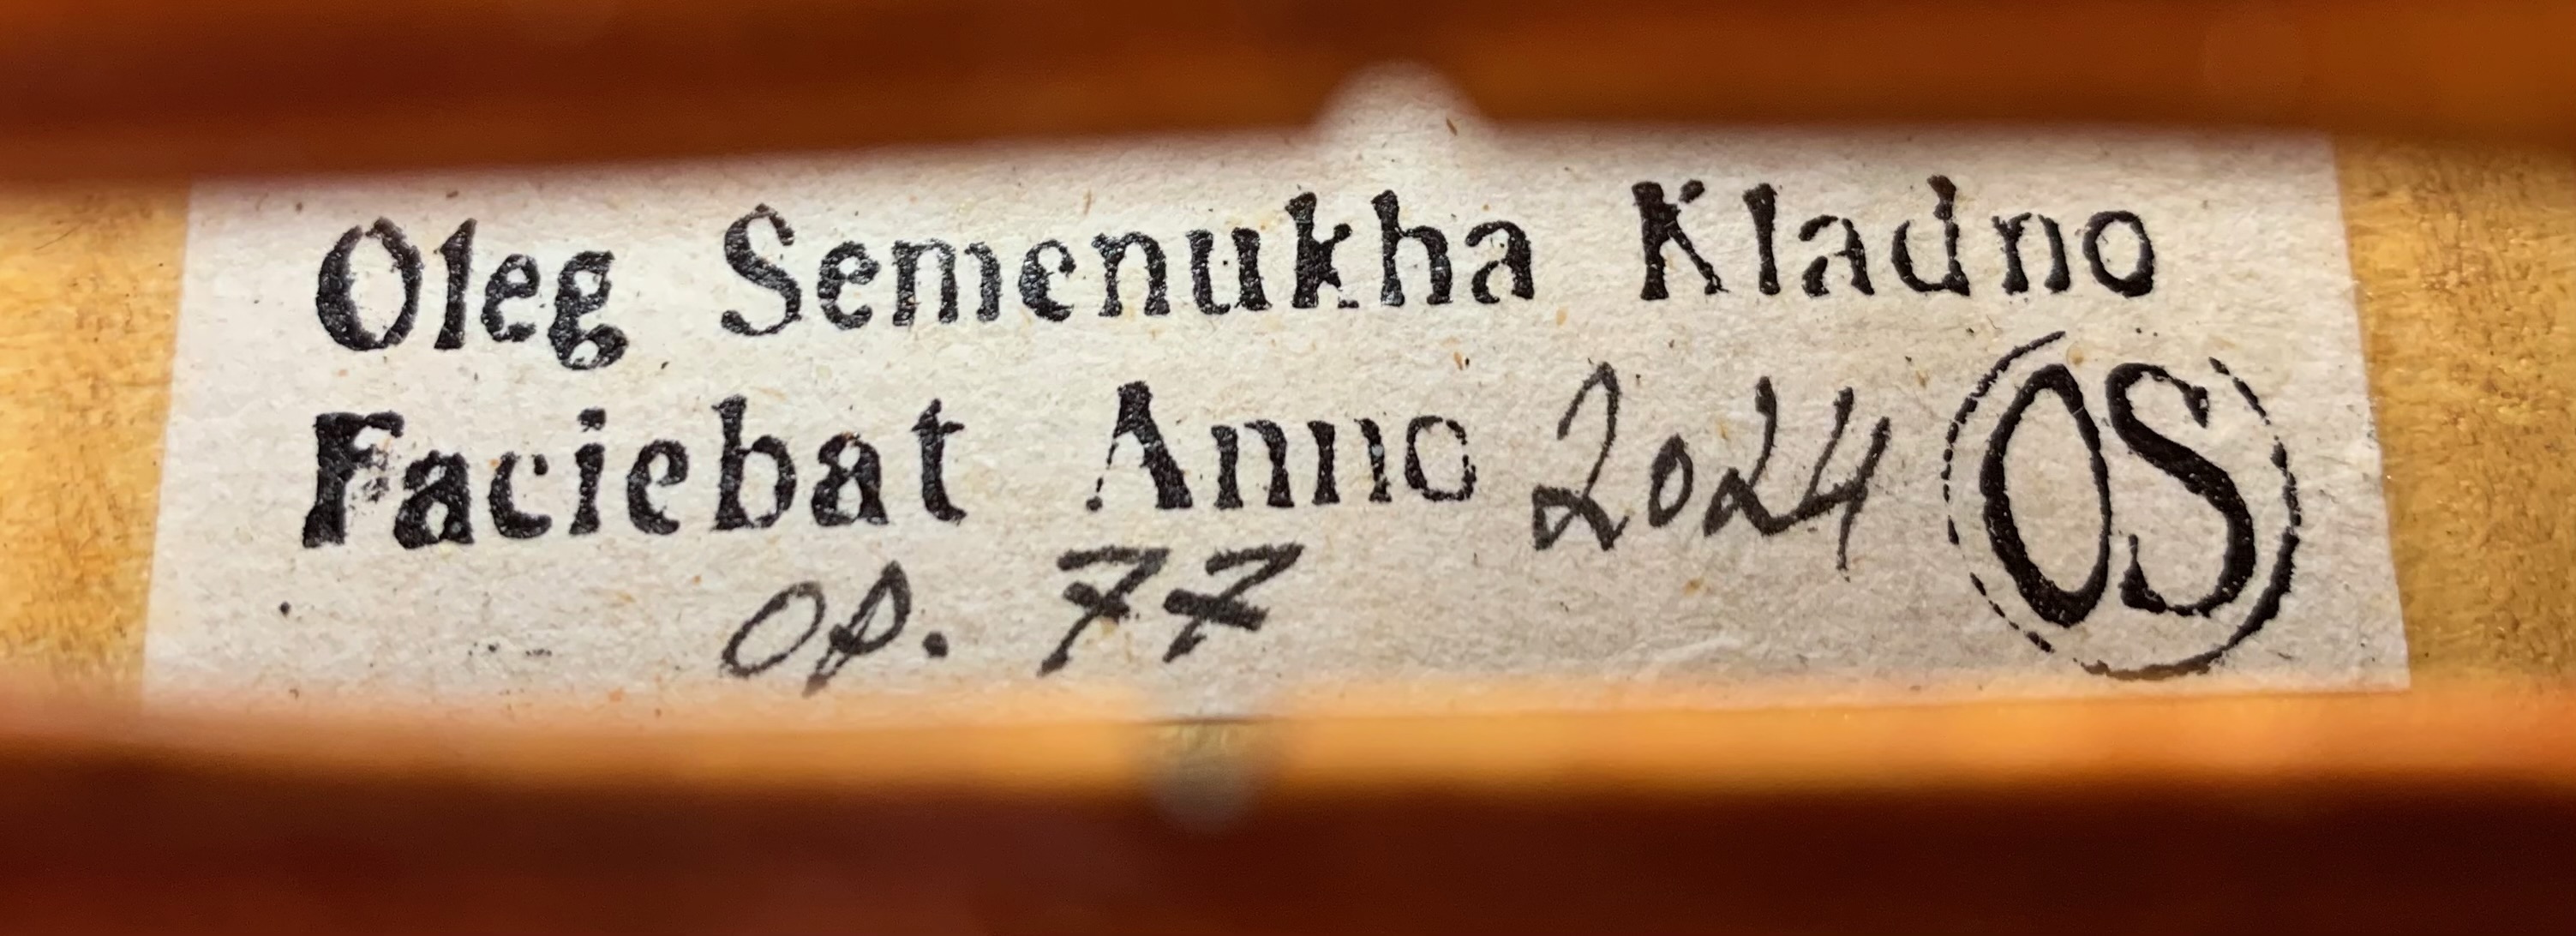 Oleg Semenukha Kladno
Faciebat Anno 2024 OS
op. 77